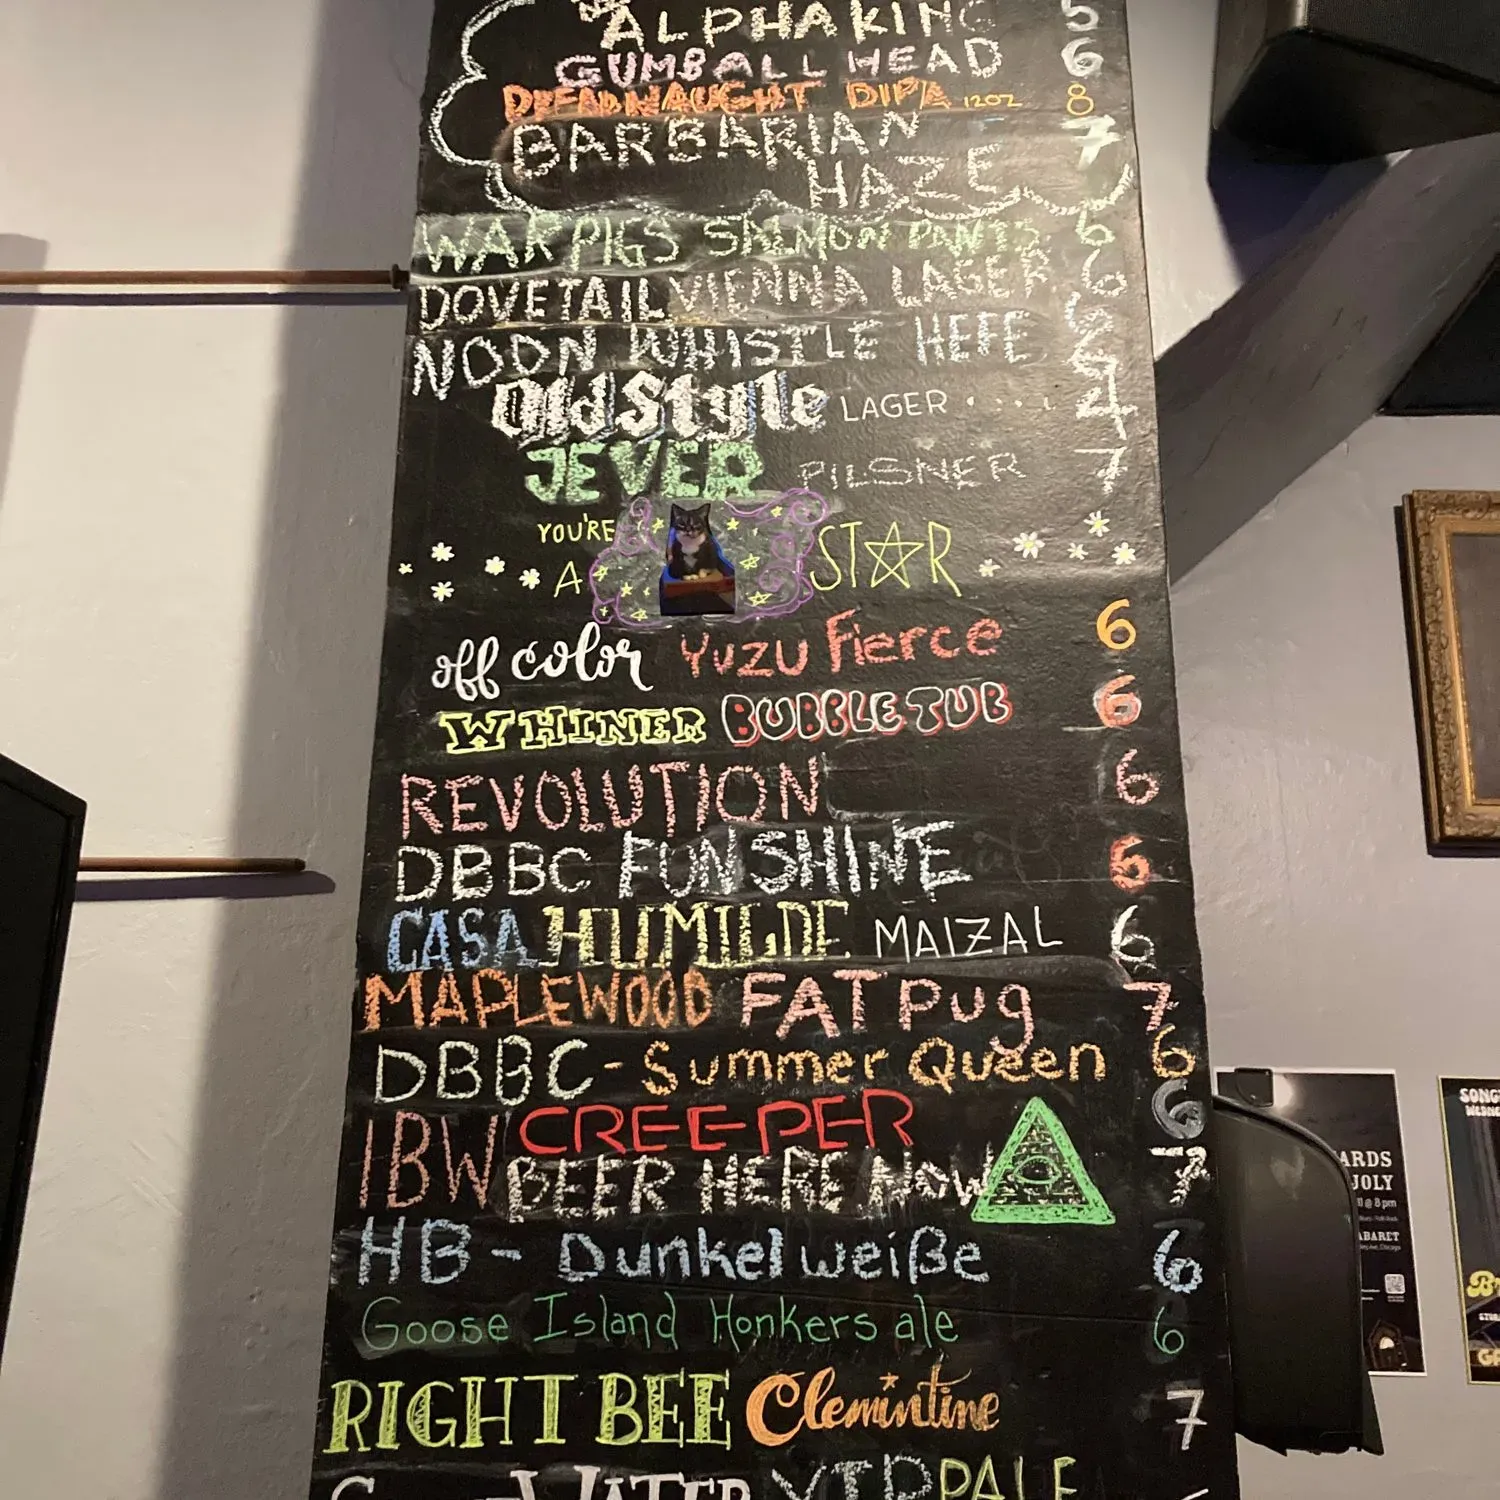 ALPHA KING 5
GUMBALL HEAD 6
DREADNAUGHT DIPA 12OZ 8
BARBARIAN 7
HAZE
WAR PIGS SALMON PANTS 6
DOVETAIL VIENNA LAGER 6
NOON WHISTLE HEFE 6
Old Style LAGER .... 4
JEVER PILSNER 7
YOU'RE
A STAR
off color Yuzu Fierce 6
WHINER BUBBLETUB 6
REVOLUTION 6
DBBC FUNSHINE 6
CASA HUMILDE MAIZAL 6
MAPLEWOOD FAT PUG 7
DBBC - Summer Queen 6
IBW CREEPER 6
BEER HERE NOW 7
HB - Dunkelweiße 6
Goose Island Honkers ale 6
RIGHT BEE Clemintine 7
WATER VIP PALE
ARDS
JOLY
@ 8 pm
ABARET
SONG